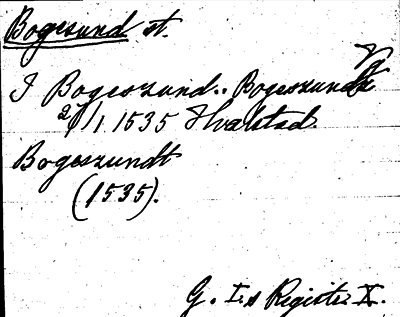 Bogesund st.
I Bogeszund. Bogeszundz
2/1 1535 Hvalstad.
Bogeszundt
(1535).
G. I.s Registr. X.